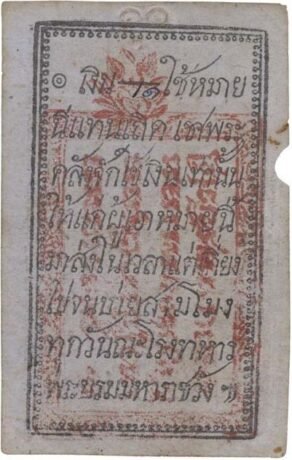 ๏ เงิน ๚ะ๑ ใช้หมาย
นี้แทนเถิด เฃาพระ
คลังจักใช้เงินเท่านั้น
ให้แก่ผู้เอาหมายนี้
มาส่งในเวลาแต่เที่ยง
ไปจนบ่ายสามโมง
ทุกวันณะโรงทหาร
พระบรมมหาราชวัง ๚